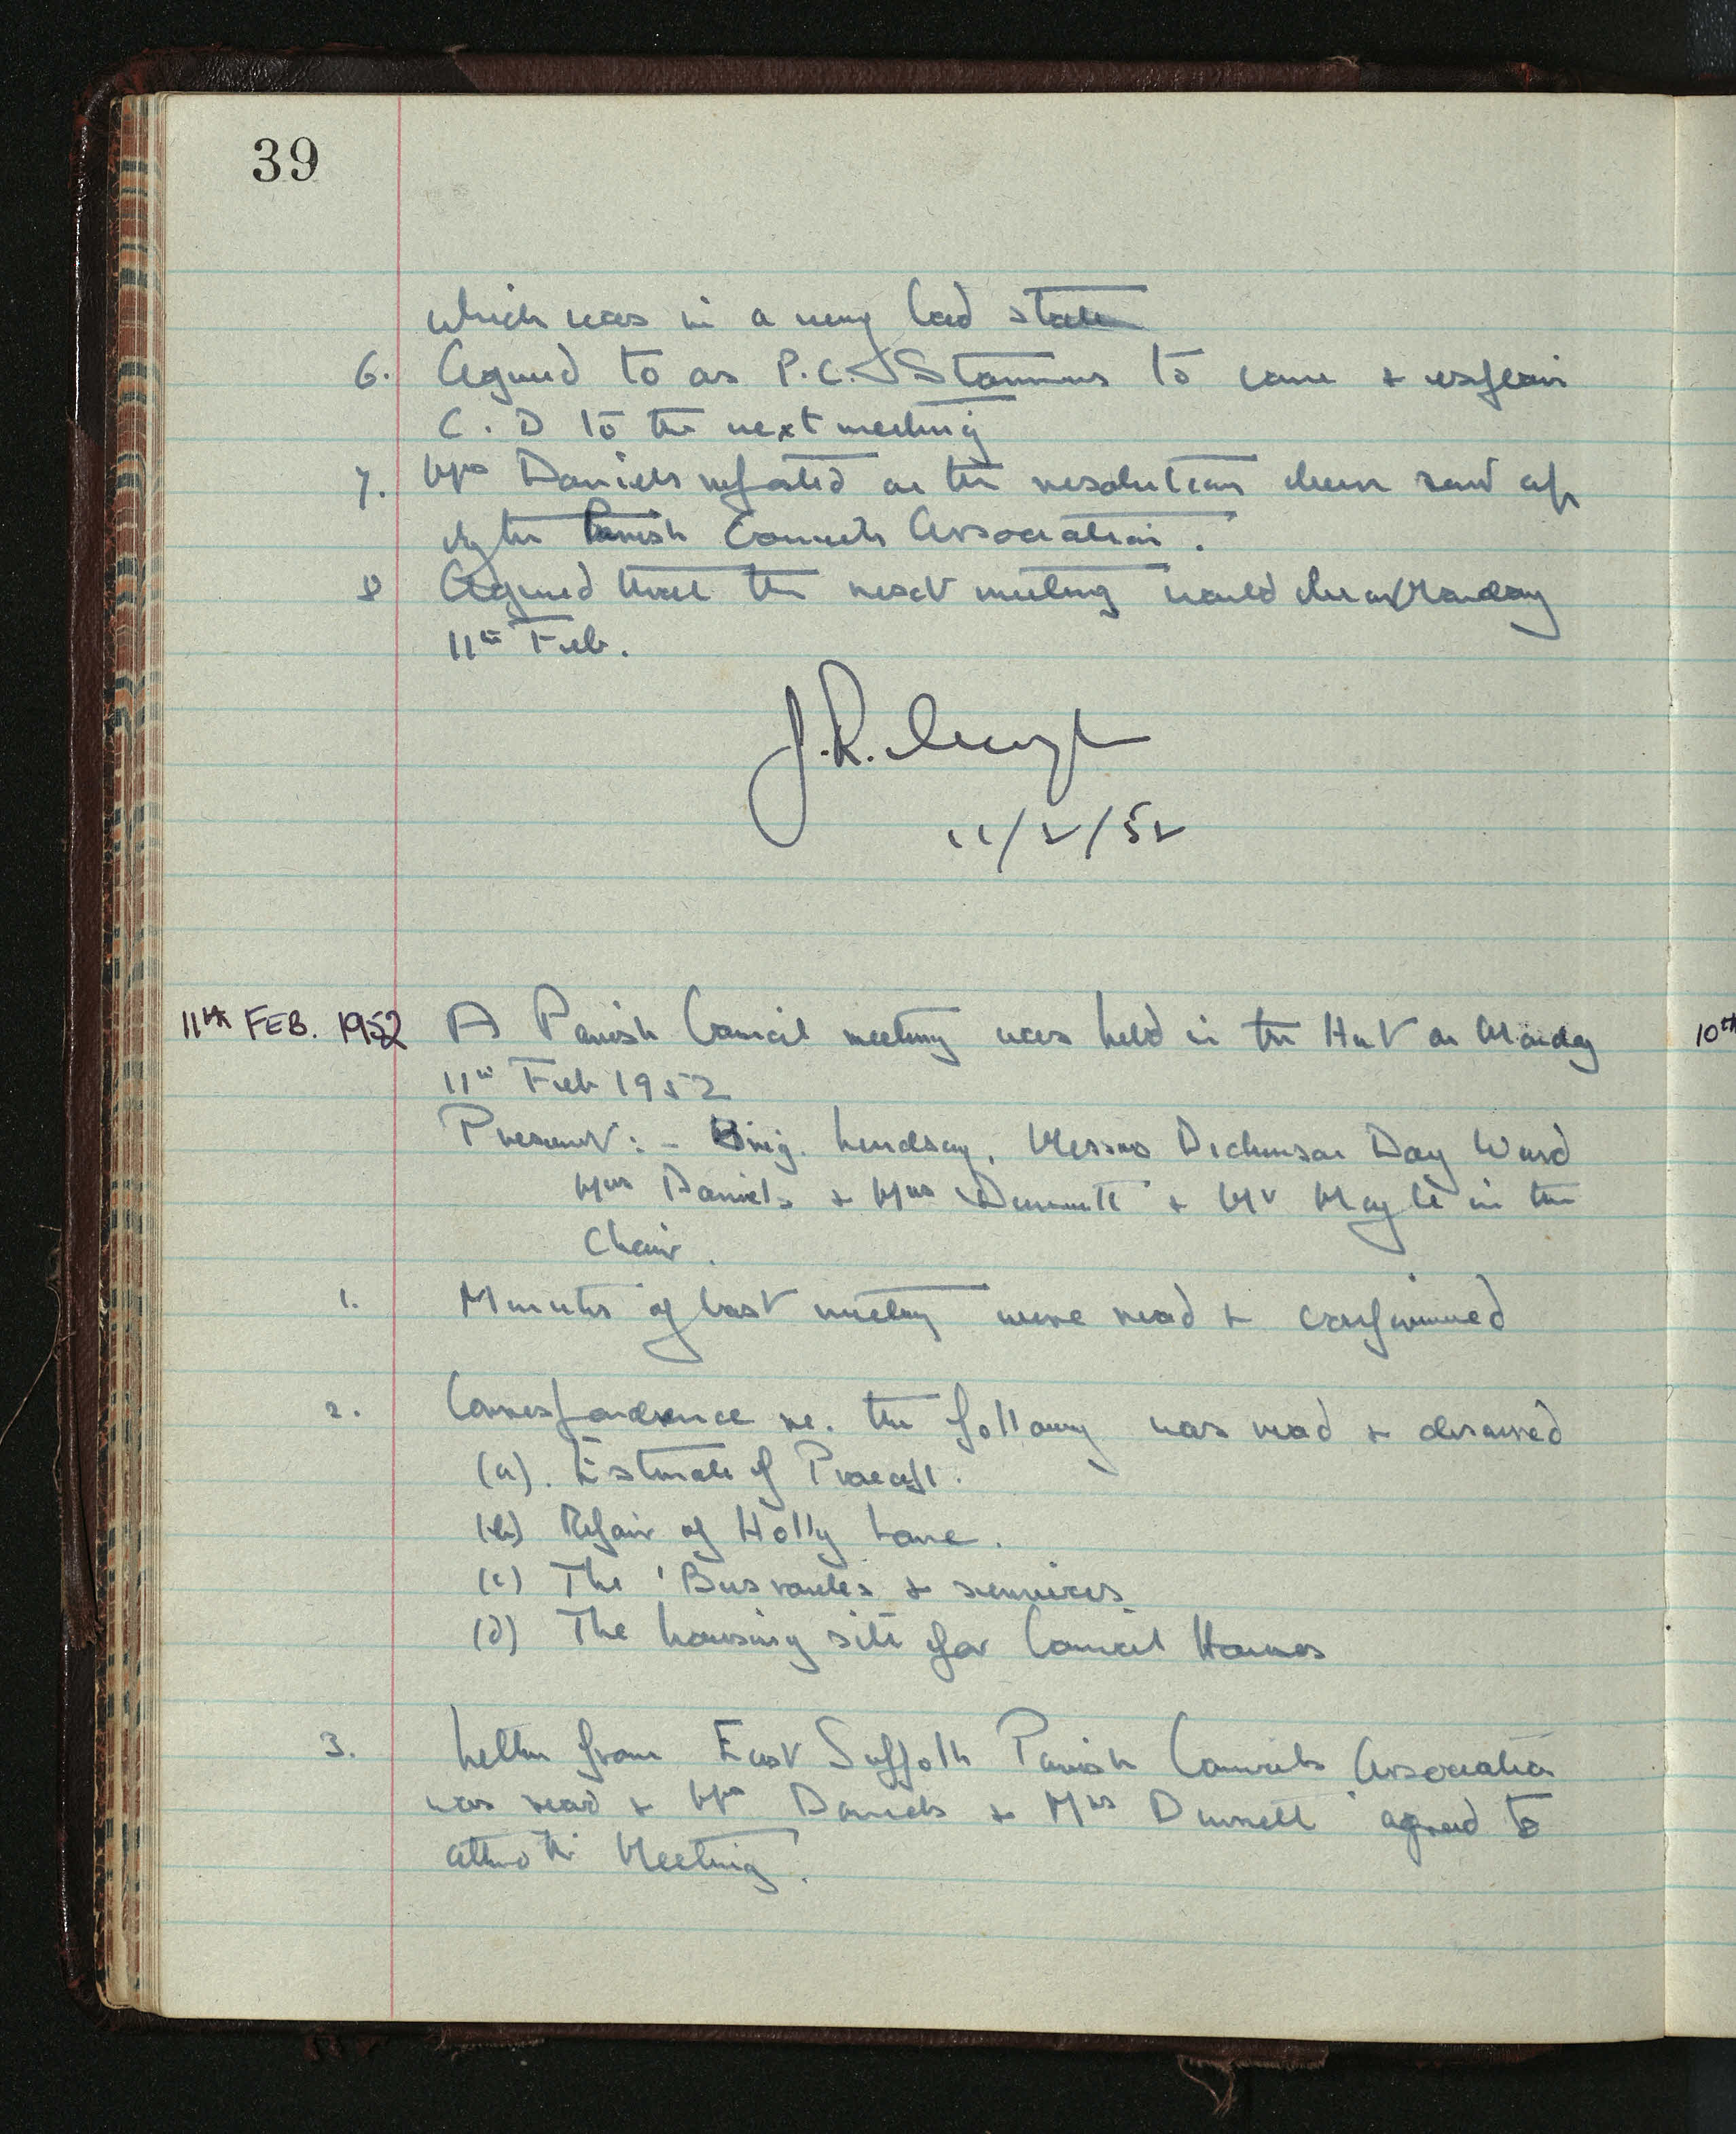 39
which was in a very bad state
6. Agreed to as P.C. Stammers to come & explain
C. D to the next meeting
7. Mrs Daniels reported on the resolutions sent up
by the Parish Councils Association.
8 Agreed that the next meeting would be on Monday
11th Feb.
J.R.
11/2/52
11th FEB. 1952 A Parish Council meeting was held in the Hut on Monday
10th
11th Feb 1952
Present:- Brig. Lindsay, Messrs Dickinson Day Ward
Mrs Daniels & Mrs Dunnett & Mr in the
Chair.
1. Minutes of last meeting were read & confirmed
2. Correspondence re. the following was read & discussed
(a). Estimate of Precept.
(b) Repair of Holly Lane.
(c) The 'Bus routes & services.
(d) The housing site for Council Houses
3. Letter from East Suffolk Parish Councils Association
was read & Mrs Daniels & Mrs Dunnett agreed to
attend the Meeting.